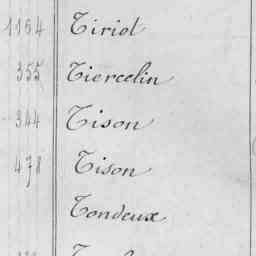 1154 Tiriot
355 Tiercelin
344 Tison
478 Tison
Tondeux